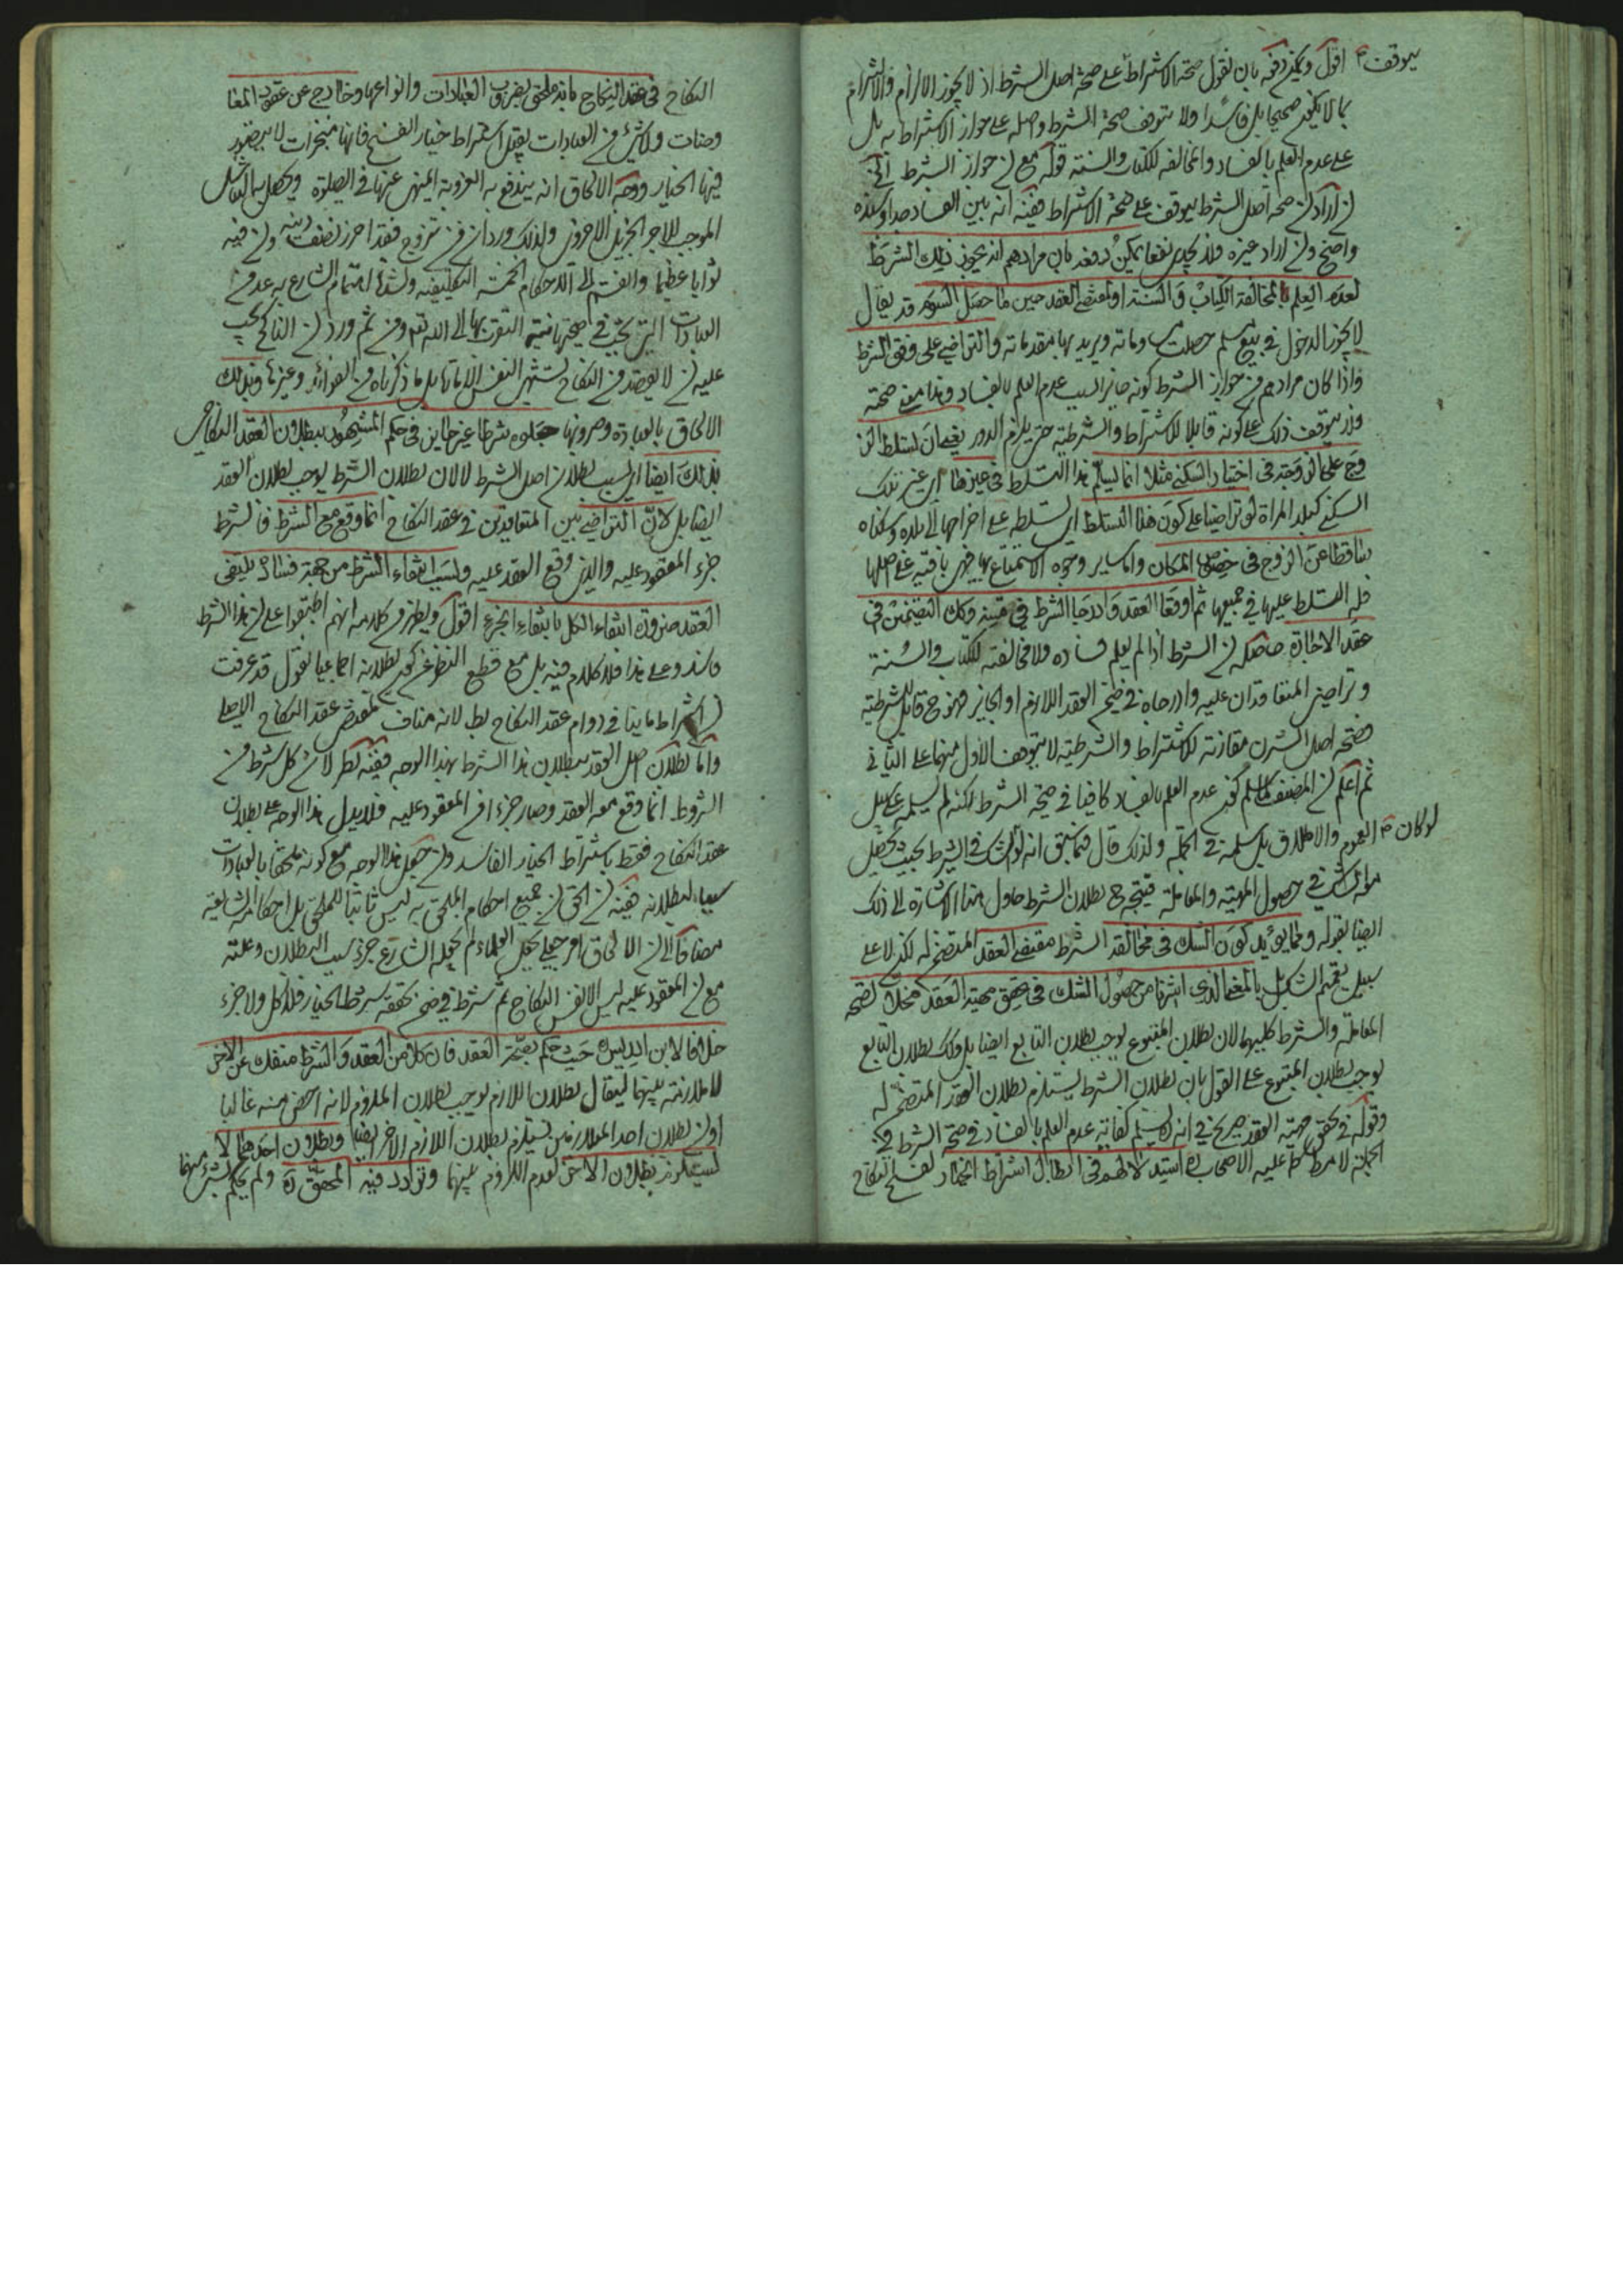 اقول ويمكن دفعه بان نقول صحة الاشتراط على صحة اصل الشرط اذ لا يجوز الالزام والالتزام
بما لا يكون صحيحا بل فاسدا ولا يتوقف صحة الشرط واصله على جواز الاشتراط به بل
على عدم العلم بالفساد والمخالفه للكتاب والسنة قوله مع ان جواز الشرط الخ
ان اراد ان صحة اصل الشرط يتوقف على صحة الاشتراط ففيه انه بين الفساد جدا وسنده
واضح وان اراد غيره فلا يجدى نفعا يمكن دفعه بان مرادهم انه يجوز ذلك الشرط
لعدم العلم بالمخالفة الكتاب والسنة او لمقتضى العقد حين ما حصل الشرط قد يقال
لا يجوز الدخول فى بيع سلم وماته ويريد بها مقدماته والتراضي على وفق الشرط
فاذا كان مرادهم من جواز الشرط كونه جائزا بسبب عدم العلم بالفساد وهذا معنى صحته
فلا يتوقف ذلك على كونه قابلا للاشتراط والشرطية حتى يلزم الدور يعنى ان تسلط الز
وج على الزوجة فى اختيار السكنى مثلا انما يسلم هذا التسلط فى غيرها اى غير تلك
السكنى كبلد المراة لو تراضيا على كون هذا التسلط اى تسلطه على اخراجها الى بلده وسكناه
ساقطا عن الزوج فى خصوص المكان واما ساير وجوه الاستمتاع بها فهى باقية على اصلها
فله التسلط عليها في جميعها ثم اوقعا العقد وادرجا الشرط في وكك التضمين فى
عقد الاجارة حاصله ان الشرط اذا لم يعلم فساده ولا مخالفته للكتاب والسنة
وتراضى المتعاقدان عليه وادرجاه في ضمن العقد اللازم او الجايز فهو ح قابل للشرطية
فصحة اصل الشرط مقارنة للاشتراط والشرطية لا يتوقف الاول منهما على الثانى
ثم اعلم ان المصنف كما سلم كون عدم العلم بالفساد كافيا في صحة الشرط لكنه لم يسلمه على سبيل
العموم والاطلاق بل سلمه فى الجملة ولذلك قال فيما سبق انه لو كان الشك فى الشرط بحيث يحصل
منه الشك فى حصول المهية والمعاملة فيتجه ح بطلان الشرط حاول هنا الاشارة الى ذلك
ايضا بقوله ومما يؤيد كون الشك فى مخالفة الشرط مقتضى العقد المتضمن له لكن لا على
سبيل يعم الشك بل بالمعنى الذى اشرنا من حصول الشك فى تحقق مهية العقد مخلا لصحة
المعاملة والشرط كليهما لان بطلان المتبوع يوجب بطلان التابع ايضا بل وكك بطلان التابع
يوجب بطلان المتبوع على القول بان بطلان الشرط يستلزم بطلان العقد المتضمن له
وقوله فى تحقق مهية العقد صريح في انه لا يسلم كفاية عدم العلم بالفساد فى صحة الشرط فى
الجملة لا مطلقا عليه الاصحاب استدلالاتهم فى ابطال اشتراط الخيار لفسخ النكاح
النكاح فى عقد النكاح بانه ملحق بضروب العبادات وانواعها وخارج عن عقود المعا
وضات ولا شئ من العبادات يقبل اشتراط خيار الفسخ فانها منجزات لا يتصور
فيها الخيار ووجه الالحاق انه يندفع به العزوبة المنهى عنها فى الصلوة ويحصل بها التناسل
الموجب للاجر الجزيل الاخروى ولذلك ورد ان من تزوج فقد احرز نصف دينه وان فيه
ثوابا عظيما وانقسم الى الاحكام الخمسة التكليفية ولشدة اهتمام الشارع به عد من
العبادات التى يعتبر في صحتها نية التقرب بها الى الله تعه ومن ثم ورد ان الناكح يجب
عليه ان لا يقصد من النكاح تشهى النفس الامارة بل ما ذكرناه من الفوائد وغيرها وبذلك
الالحاق بالعبادة وضروبها جعلوه شرطا غير جايز فى حكم المشهور ببطلان العقد النكاح
بذلك ايضا اى بسبب بطلان اصل الشرط لا لان بطلان الشرط يوجب بطلان العقد
ايضا بل لان التراضى بين المتعاقدين فى عقد النكاح انما وقع مع الشرط فالشرط
جزء المعقود عليه والذى وقع العقد عليه وبسبب انتفاء الشرط من جهة فساده ينتفى
العقد ضرورة انتفاء الكل بانتفاء الجزء اقول ويظهر من كلامه انهم اطبقوا على ان هذا الشرط
فاسد وعلى هذا فلا كلام فيه بل مع قطع النظر عن كون بطلانه اجماعيا نقول قد عرفت
ان اشتراط ما ينافى دوام عقد النكاح بط لانه مناف لمقتضى عقد النكاح الاصلى
واما بطلان اصل العقد ببطلان هذا الشرط بهذا الوجه ففيه نظر لان كل شرط من
الشروط انما وقع معه العقد وصار جزءا من المعقود عليه فلا يدل هذا الوجه على بطلان
عقد النكاح فقط باشتراط الخيار الفاسد وان جعل هذا الوجه مع كونه ملحقا بالعبادات
سببا لبطلانه ففيه ان الحق ان جميع احكام الملحق به ليس ثابتا للملحق بل احكامه الشايعة
مضافا الى ان الالحاق امر جعلى بجعل العلماء لم يجعله الشارع جزء سبب البطلان وعلته
مع ان المعقود عليه ليس الا نفس النكاح ثم شرط في ضمن تحققه شرط الخيار فلا كل ولا جزء
خلافا لابن ادريس ره حيث حكم بصحة العقد فان كلا من العقد والشرط منفك عن الاخر
لا ملازمة بينهما ليقال بطلان اللازم يوجب بطلان الملزوم لانه اخص منه غالبا
او ان بطلان احد المتلازمين يستلزم بطلان اللازم الاخر ايضا وبطلان احدهما لا
يستلزم بطلان الاخر لعدم اللزوم بينهما وتردد فيه المحقق ره ولم يحكم بشئ منهما